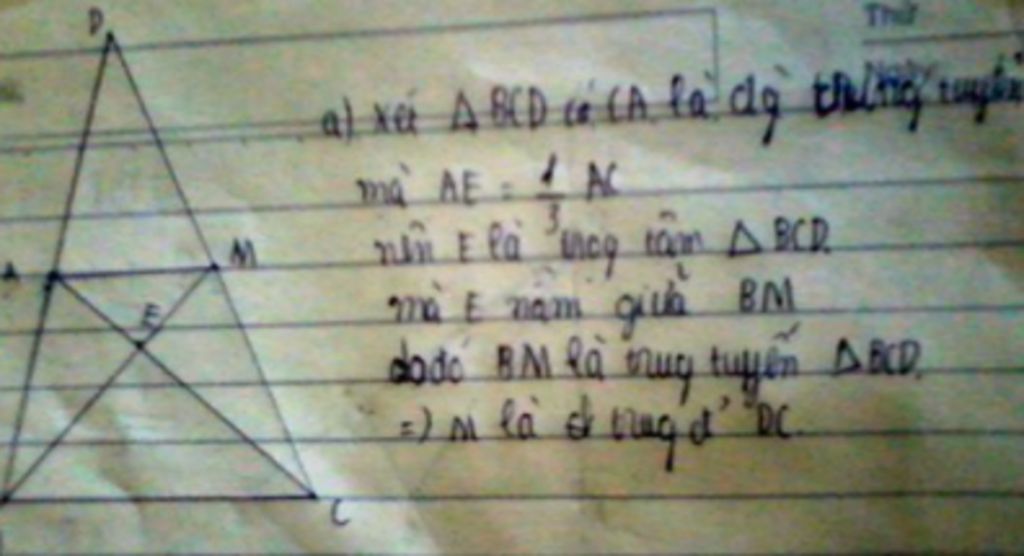 Thứ
D
a) xét Δ BCD có CA là dg trung tuyến
mà AE = 1/3 AC
nên E là trog tâm Δ BCD.
A M
mà E nằm giữa BM
E
do đó BM là trug tuyến Δ BCD.
=) M là trug đ' DC.
C